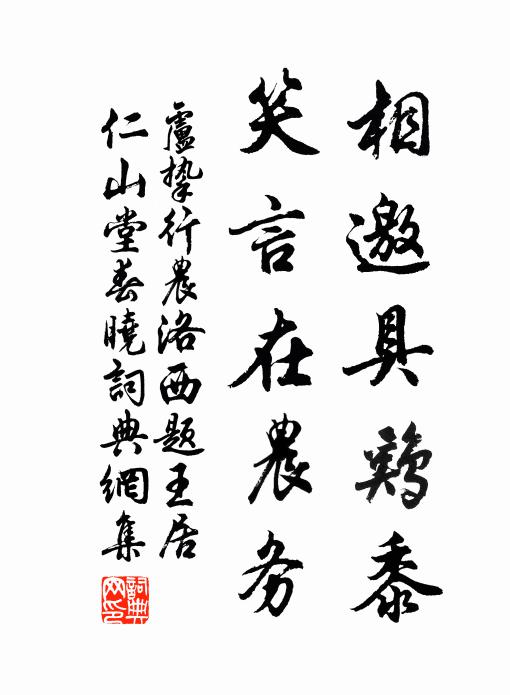 相邀具鷄黍
笑言在農务
盧摯行農洛西题王居
仁山堂春曉詞典網集
詞典网印